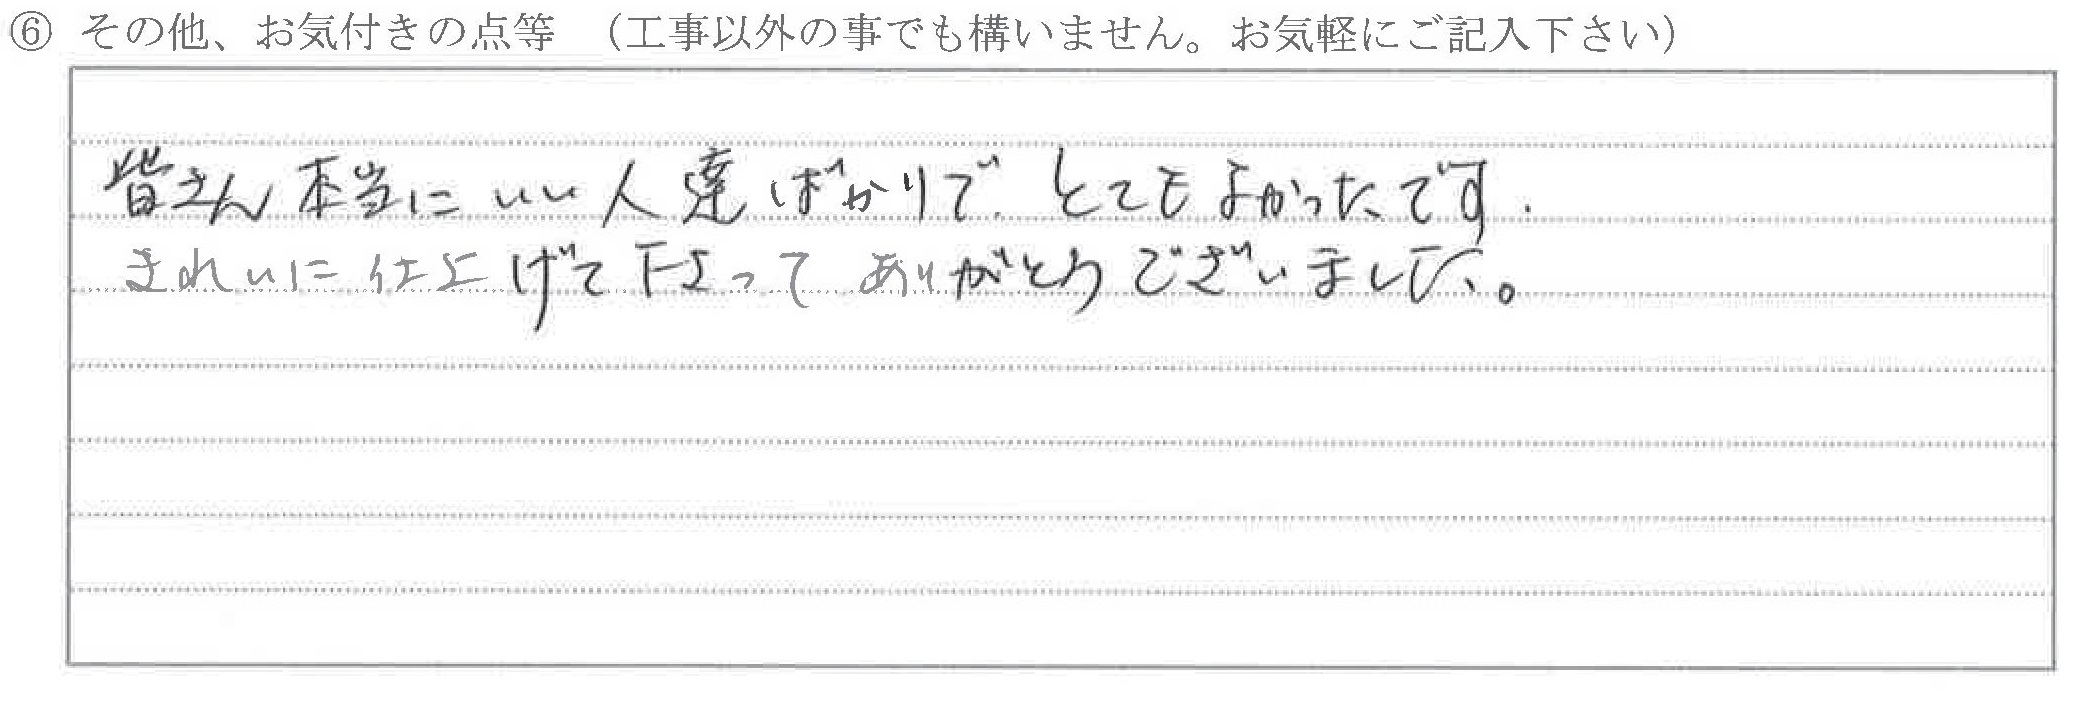 ⑥ その他、お気付きの点等 （工事以外の事でも構いません。お気軽にご記入下さい）
皆さん本当にいい人達ばかりで とてもよかったです.
きれいに仕上げて下さって ありがとうございました。